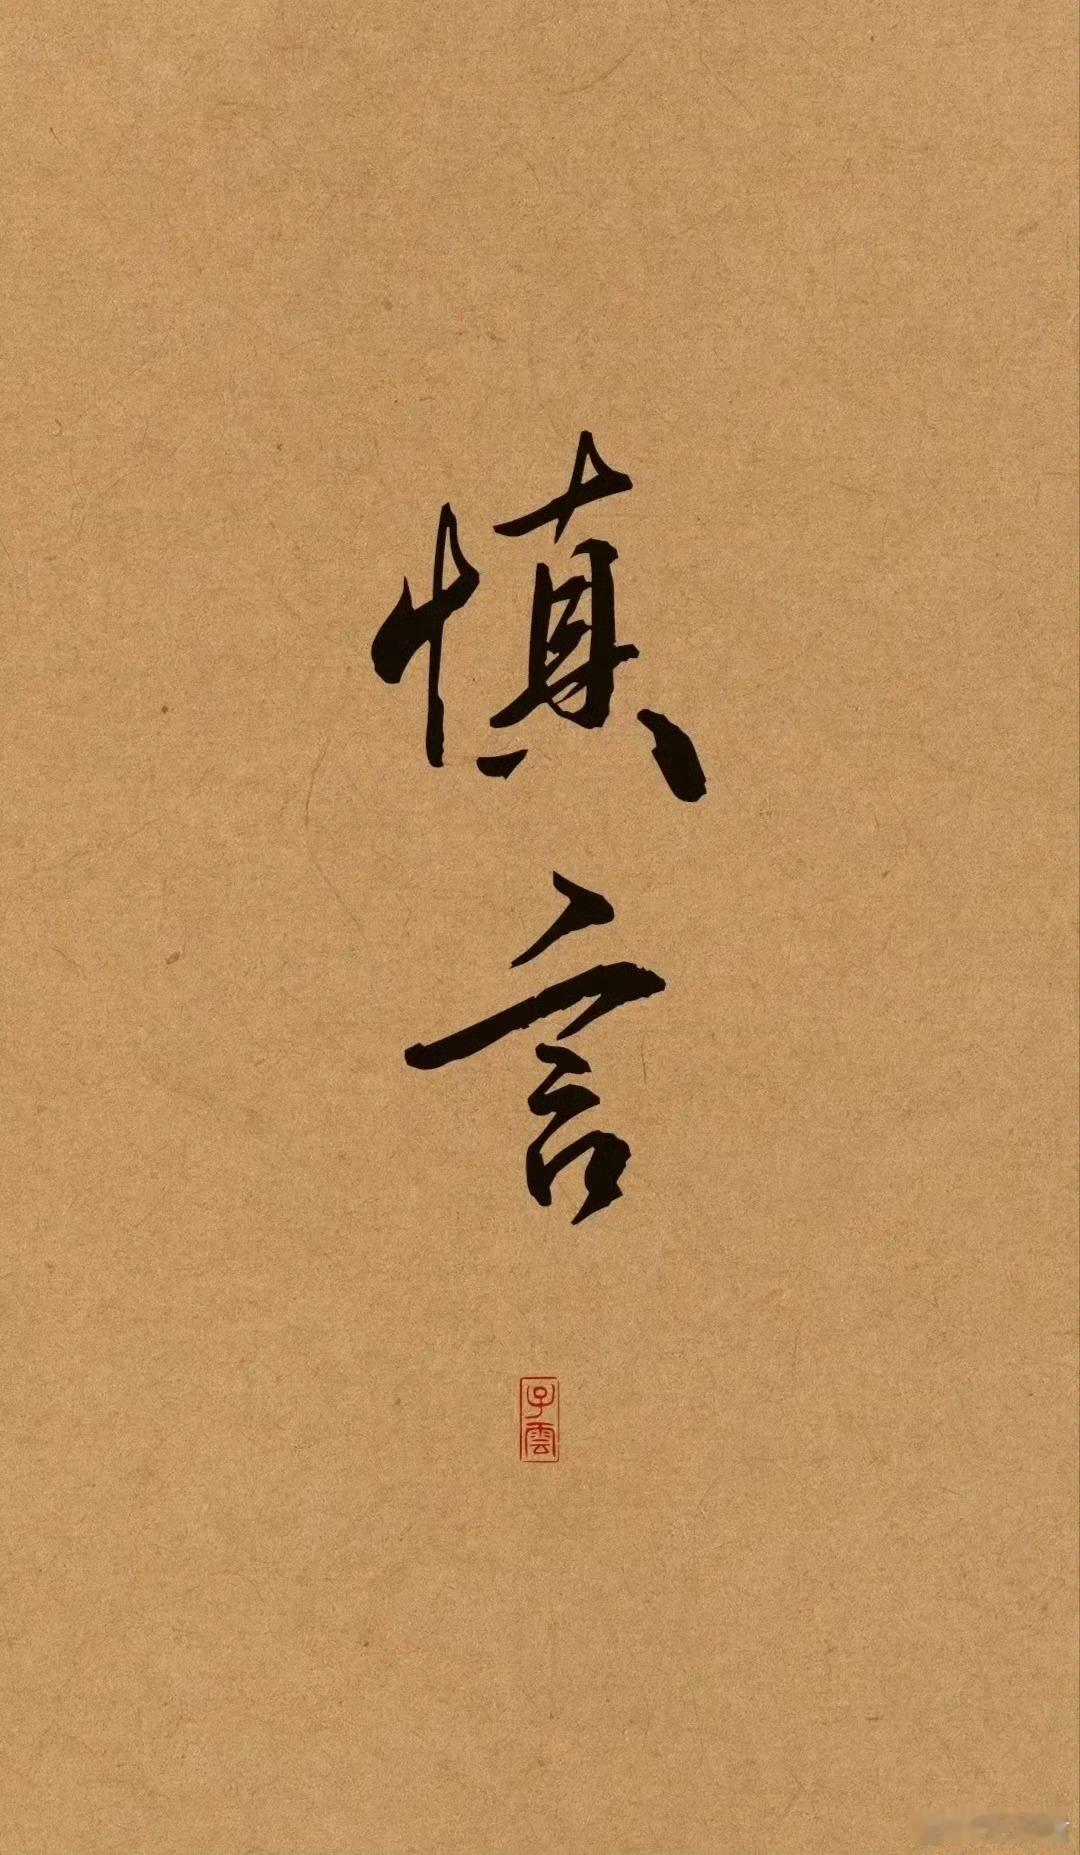 慎言
子雲